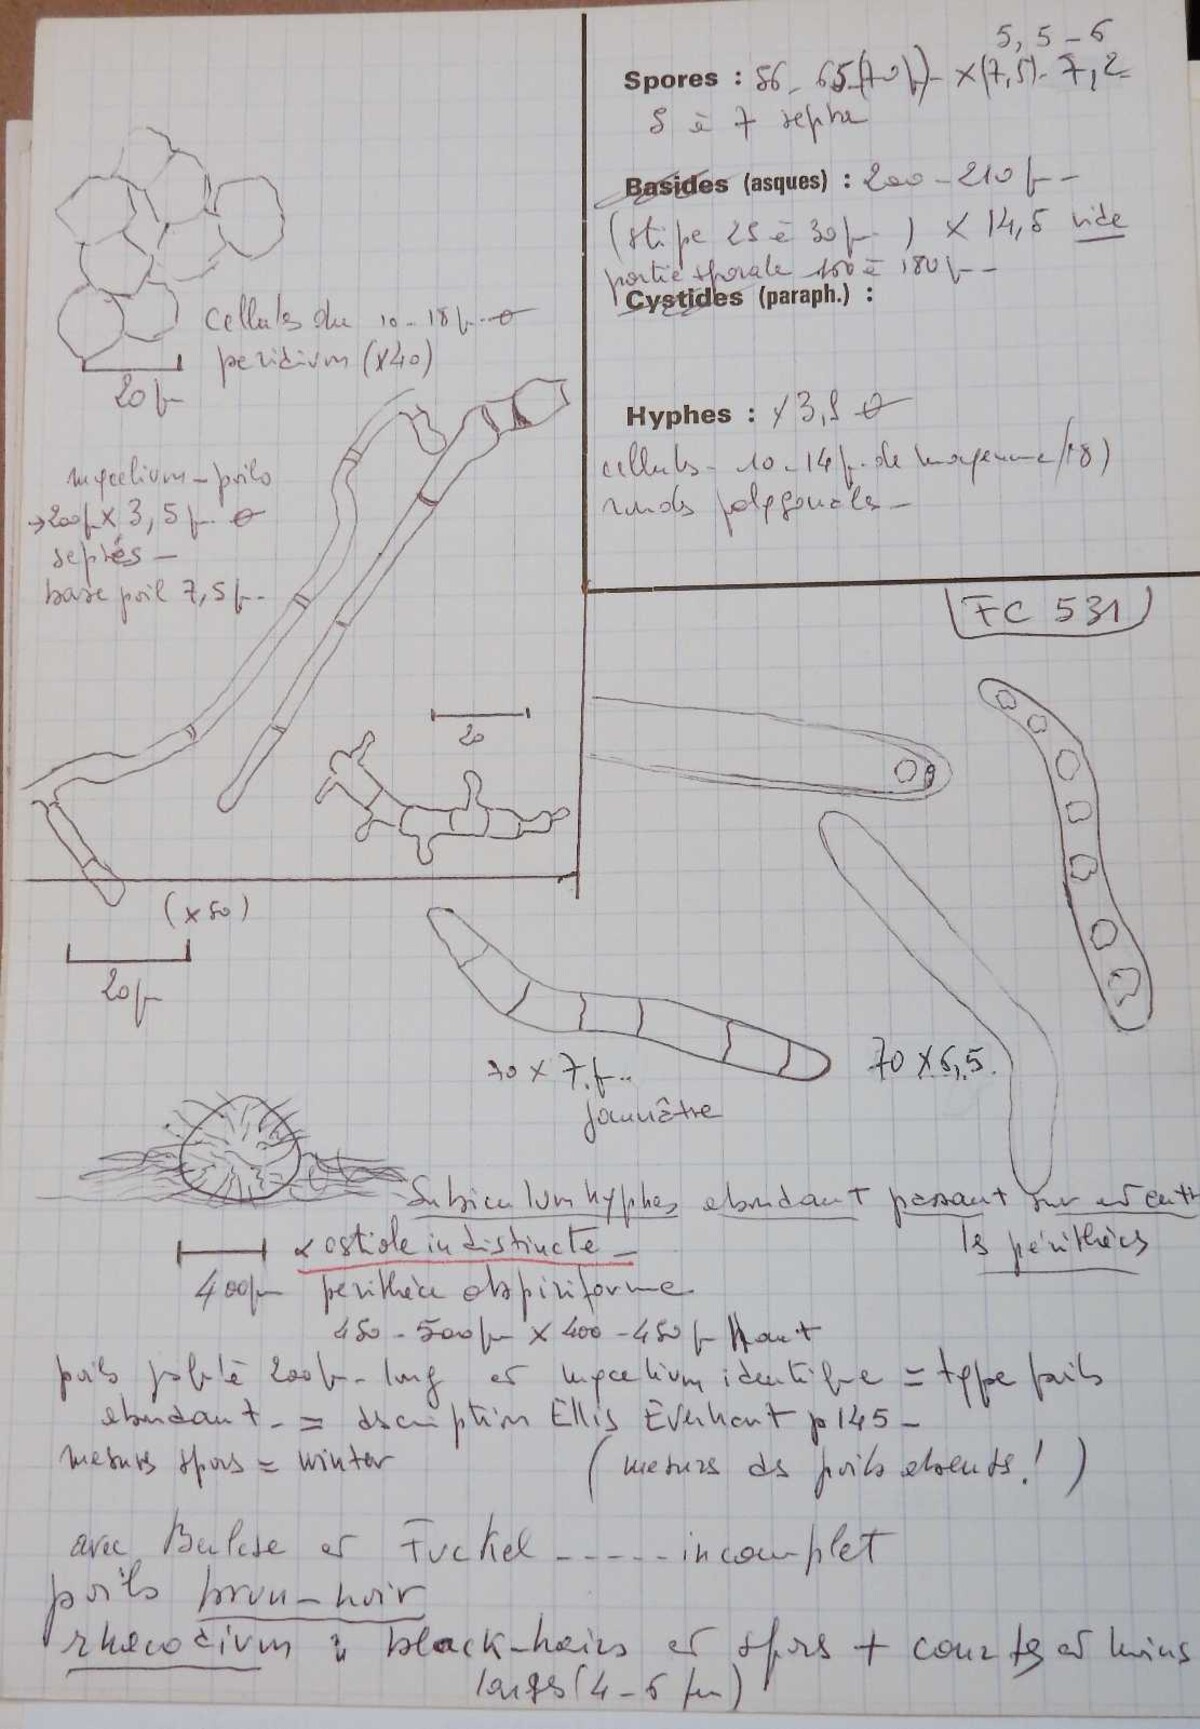 5,5-6
Spores : 56-65(70µ)- x(7,5)-7,2-
5 à 7 septa
Basides (asques) : 200-210µ-
(stipe 25 à 30µ ) x 14,5 vide
portie sporale 150 à 180µ-
Cystides (paraph.) :
Hyphes : x3,5 ø
cellules - 10-14µ de moyenne (18)
ronds polygonales -
FC 531
cellules du 10-18µ ø
peridium (x40)
20µ
mycelium-poils
→200µ x 3,5µ ø
septés -
base poil 7,5µ.
20
(x50)
20µ
70 x 7µ.
jaunâtre
70 x 6,5.
Subiculum hyphes abondant passant sur et entr
ls périthèces
400µ
ostiole indistincte -
périthèce obpiriforme
450-500µ x 400-450µ Haut
poils jusqu'à 200µ- long et mycelium identique = type poils
abondant - = description Ellis Everhart p 145 -
mesures spors = Winter
(mesures ds poils absents !)
avec Berlese et Fuckel ------ incomplet
poils brun-noir
rhacodium : black-hairs et spors + courtes et moins
larges (4-6 µm)